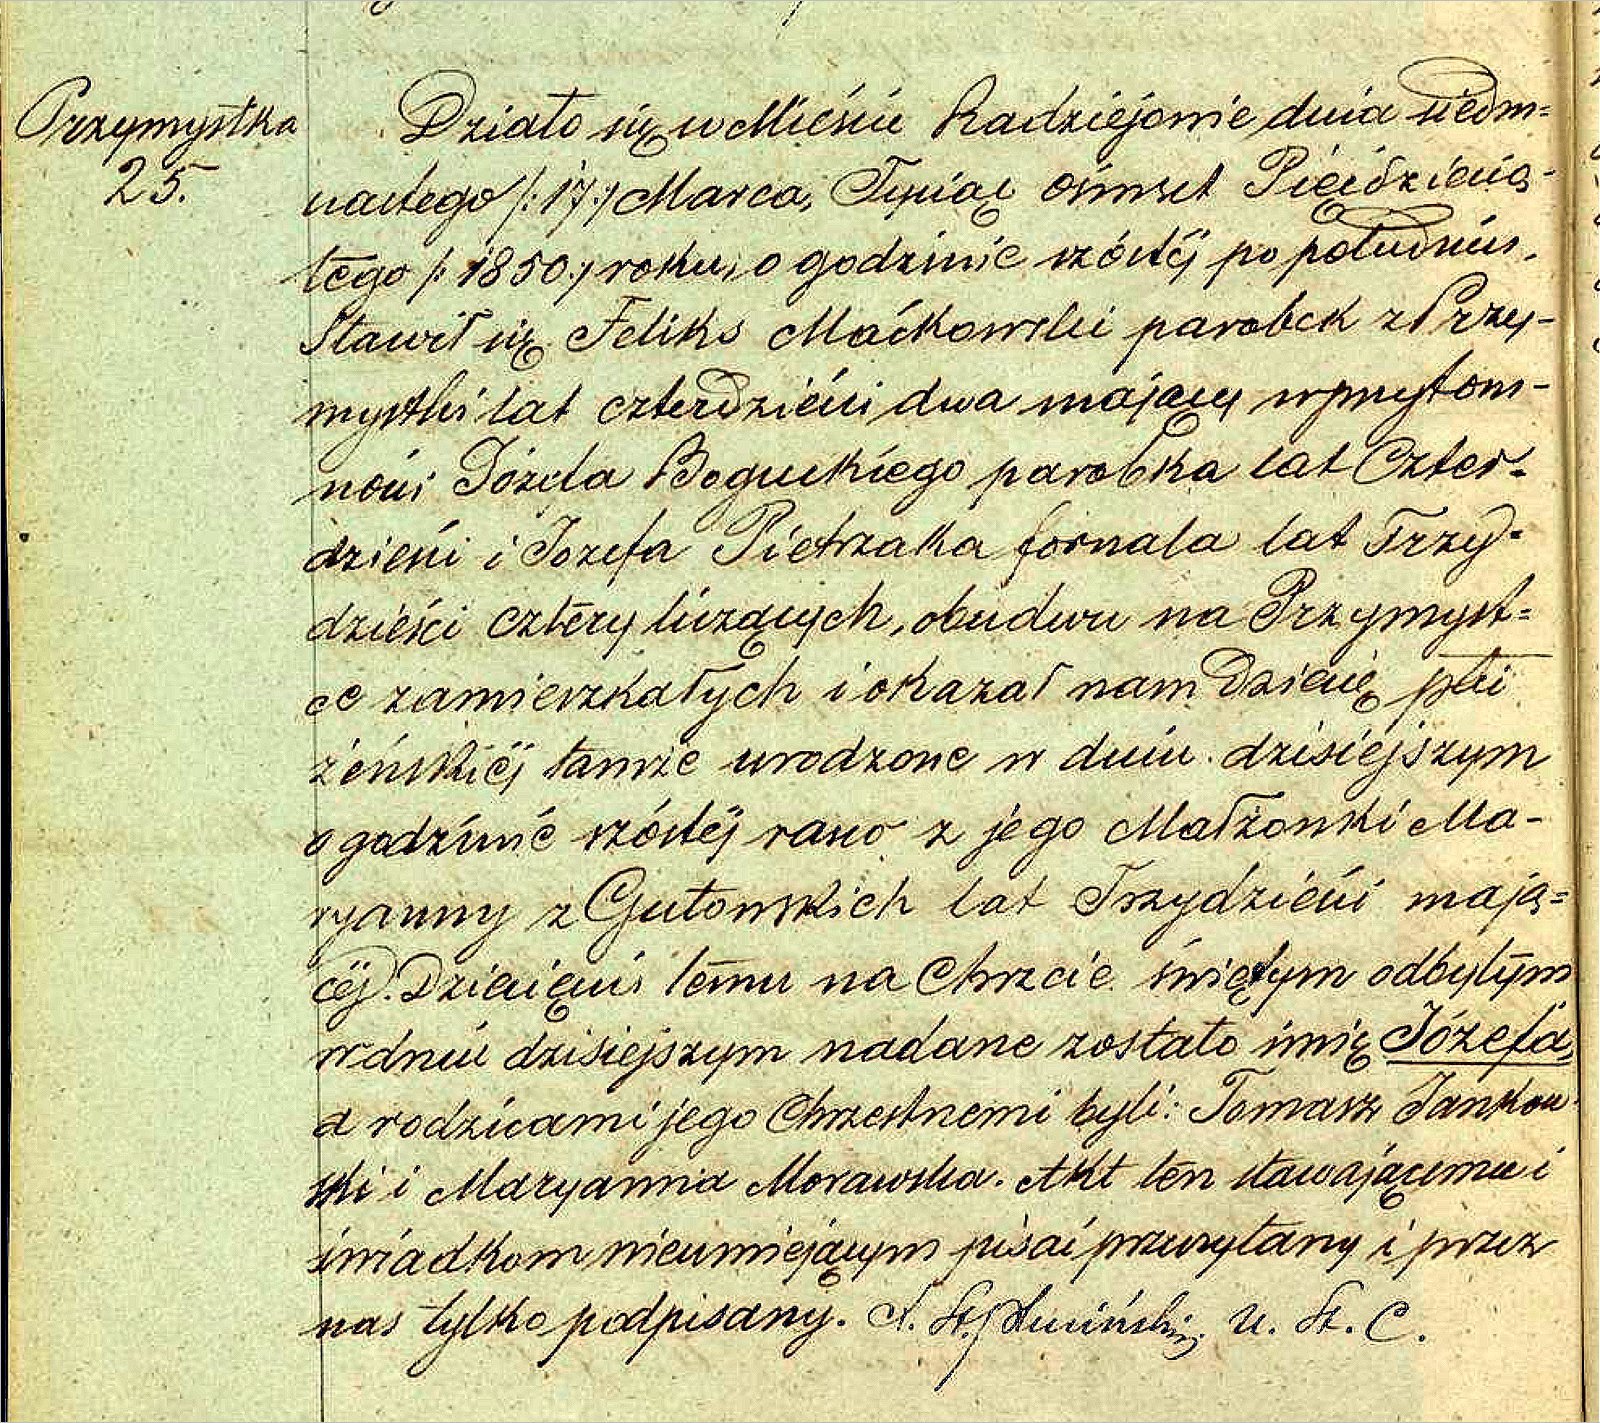 Przymystka
25.
Działo się w Mieście Radziejowie dnia siedm=
nastego /:17:/ Marca, Tysiąc ośmset Pięćdziesią-
tego /:1850:/ roku, o godzinie szóstéj po południu.
Stawił się Feliks Maćkowski parobek z Przy-
mystki lat czterdzieści dwa mający w przytom-
ności Józefa Boguckiego parobka lat Czter=
dzieści i Jozefa Pietrzaka fornala lat Trzy-
dzieści cztery liczących, obudwu na Przymyst=
ce zamieszkałych i okazał nam Dziecię płci
żeńskiéj tamże urodzone w dniu dzisiejszym
o godzinie szóstéj rano z jego Małżonki Ma-
ryanny z Gutowskich lat Trzydzieści mają=
céj. Dziecięciu temu na Chrzcie świętym odbytym
w dniu dzisiejszym nadane zostało imię Józefa,
a rodzicami jego Chrzestnemi byli: Tomasz Jankow-
ski i Maryanna Morawska. Akt ten stawającemu i
świadkom nieumiejącym pisać przeczytany i przez
nas tylko podpisany. U. St. C.